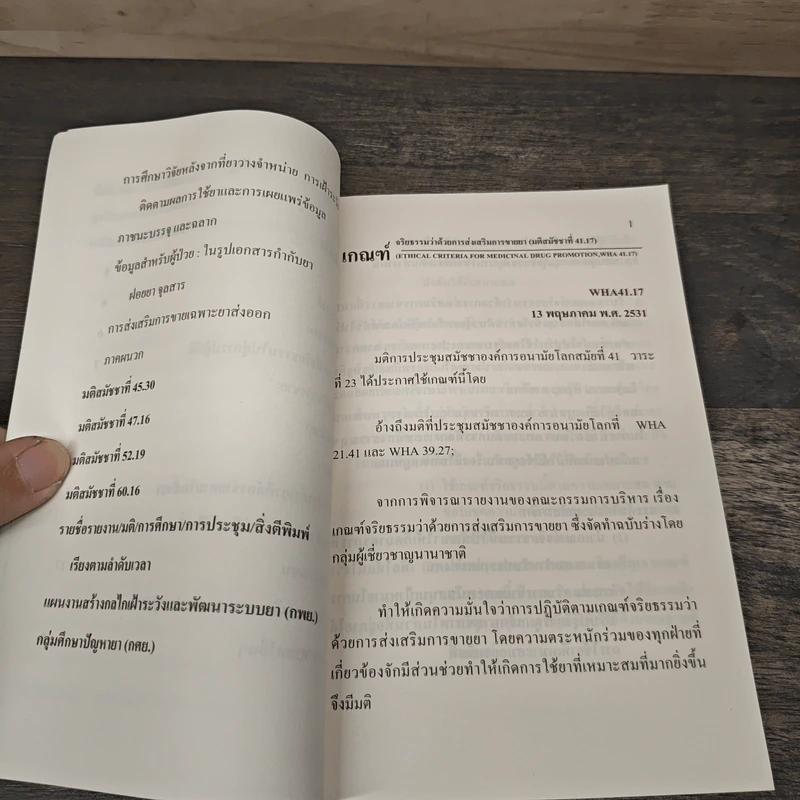 การศึกษาวิจัยหลังจากที่ยาวางจำหน่าย การเฝ้าระวัง
ติดตามผลการใช้ยาและการเผยแพร่ข้อมูล
ภาชนะบรรจุ และฉลาก
ข้อมูลสำหรับผู้ป่วย : ในรูปเอกสารกำกับยา
ฝอยยา จุลสาร
การส่งเสริมการขายเฉพาะยาส่งออก
ภาคผนวก
มติสมัชชาที่ 45.30
มติสมัชชาที่ 47.16
มติสมัชชาที่ 52.19
มติสมัชชาที่ 60.16
รายชื่อรายงาน/มติ/การศึกษา/การประชุม/สิ่งตีพิมพ์
เรียงตามลำดับเวลา
แผนงานสร้างกลไกเฝ้าระวังและพัฒนาระบบยา (กพย.)
กลุ่มศึกษาปัญหายา (กศย.)
1
เกณฑ์ จริยธรรมว่าด้วยการส่งเสริมการขายยา (มติสมัชชาที่ 41.17)
(ETHICAL CRITERIA FOR MEDICINAL DRUG PROMOTION,WHA 41.17)
WHA41.17
13 พฤษภาคม พ.ศ. 2531
มติการประชุมสมัชชาองค์การอนามัยโลกสมัยที่ 41 วาระ
ที่ 23 ได้ประกาศใช้เกณฑ์นี้โดย
อ้างถึงมติที่ประชุมสมัชชาองค์การอนามัยโลกที่ WHA
21.41 และ WHA 39.27;
จากการพิจารณารายงานของคณะกรรมการบริหาร เรื่อง
เกณฑ์จริยธรรมว่าด้วยการส่งเสริมการขายยา ซึ่งจัดทำฉบับร่างโดย
กลุ่มผู้เชี่ยวชาญนานาชาติ
ทำให้เกิดความมั่นใจว่าการปฏิบัติตามเกณฑ์จริยธรรมว่า
ด้วยการส่งเสริมการขายยา โดยความตระหนักร่วมของทุกฝ่ายที่
เกี่ยวข้องจักมีส่วนช่วยทำให้เกิดการใช้ยาที่เหมาะสมที่มากยิ่งขึ้น
จึงมีมติ